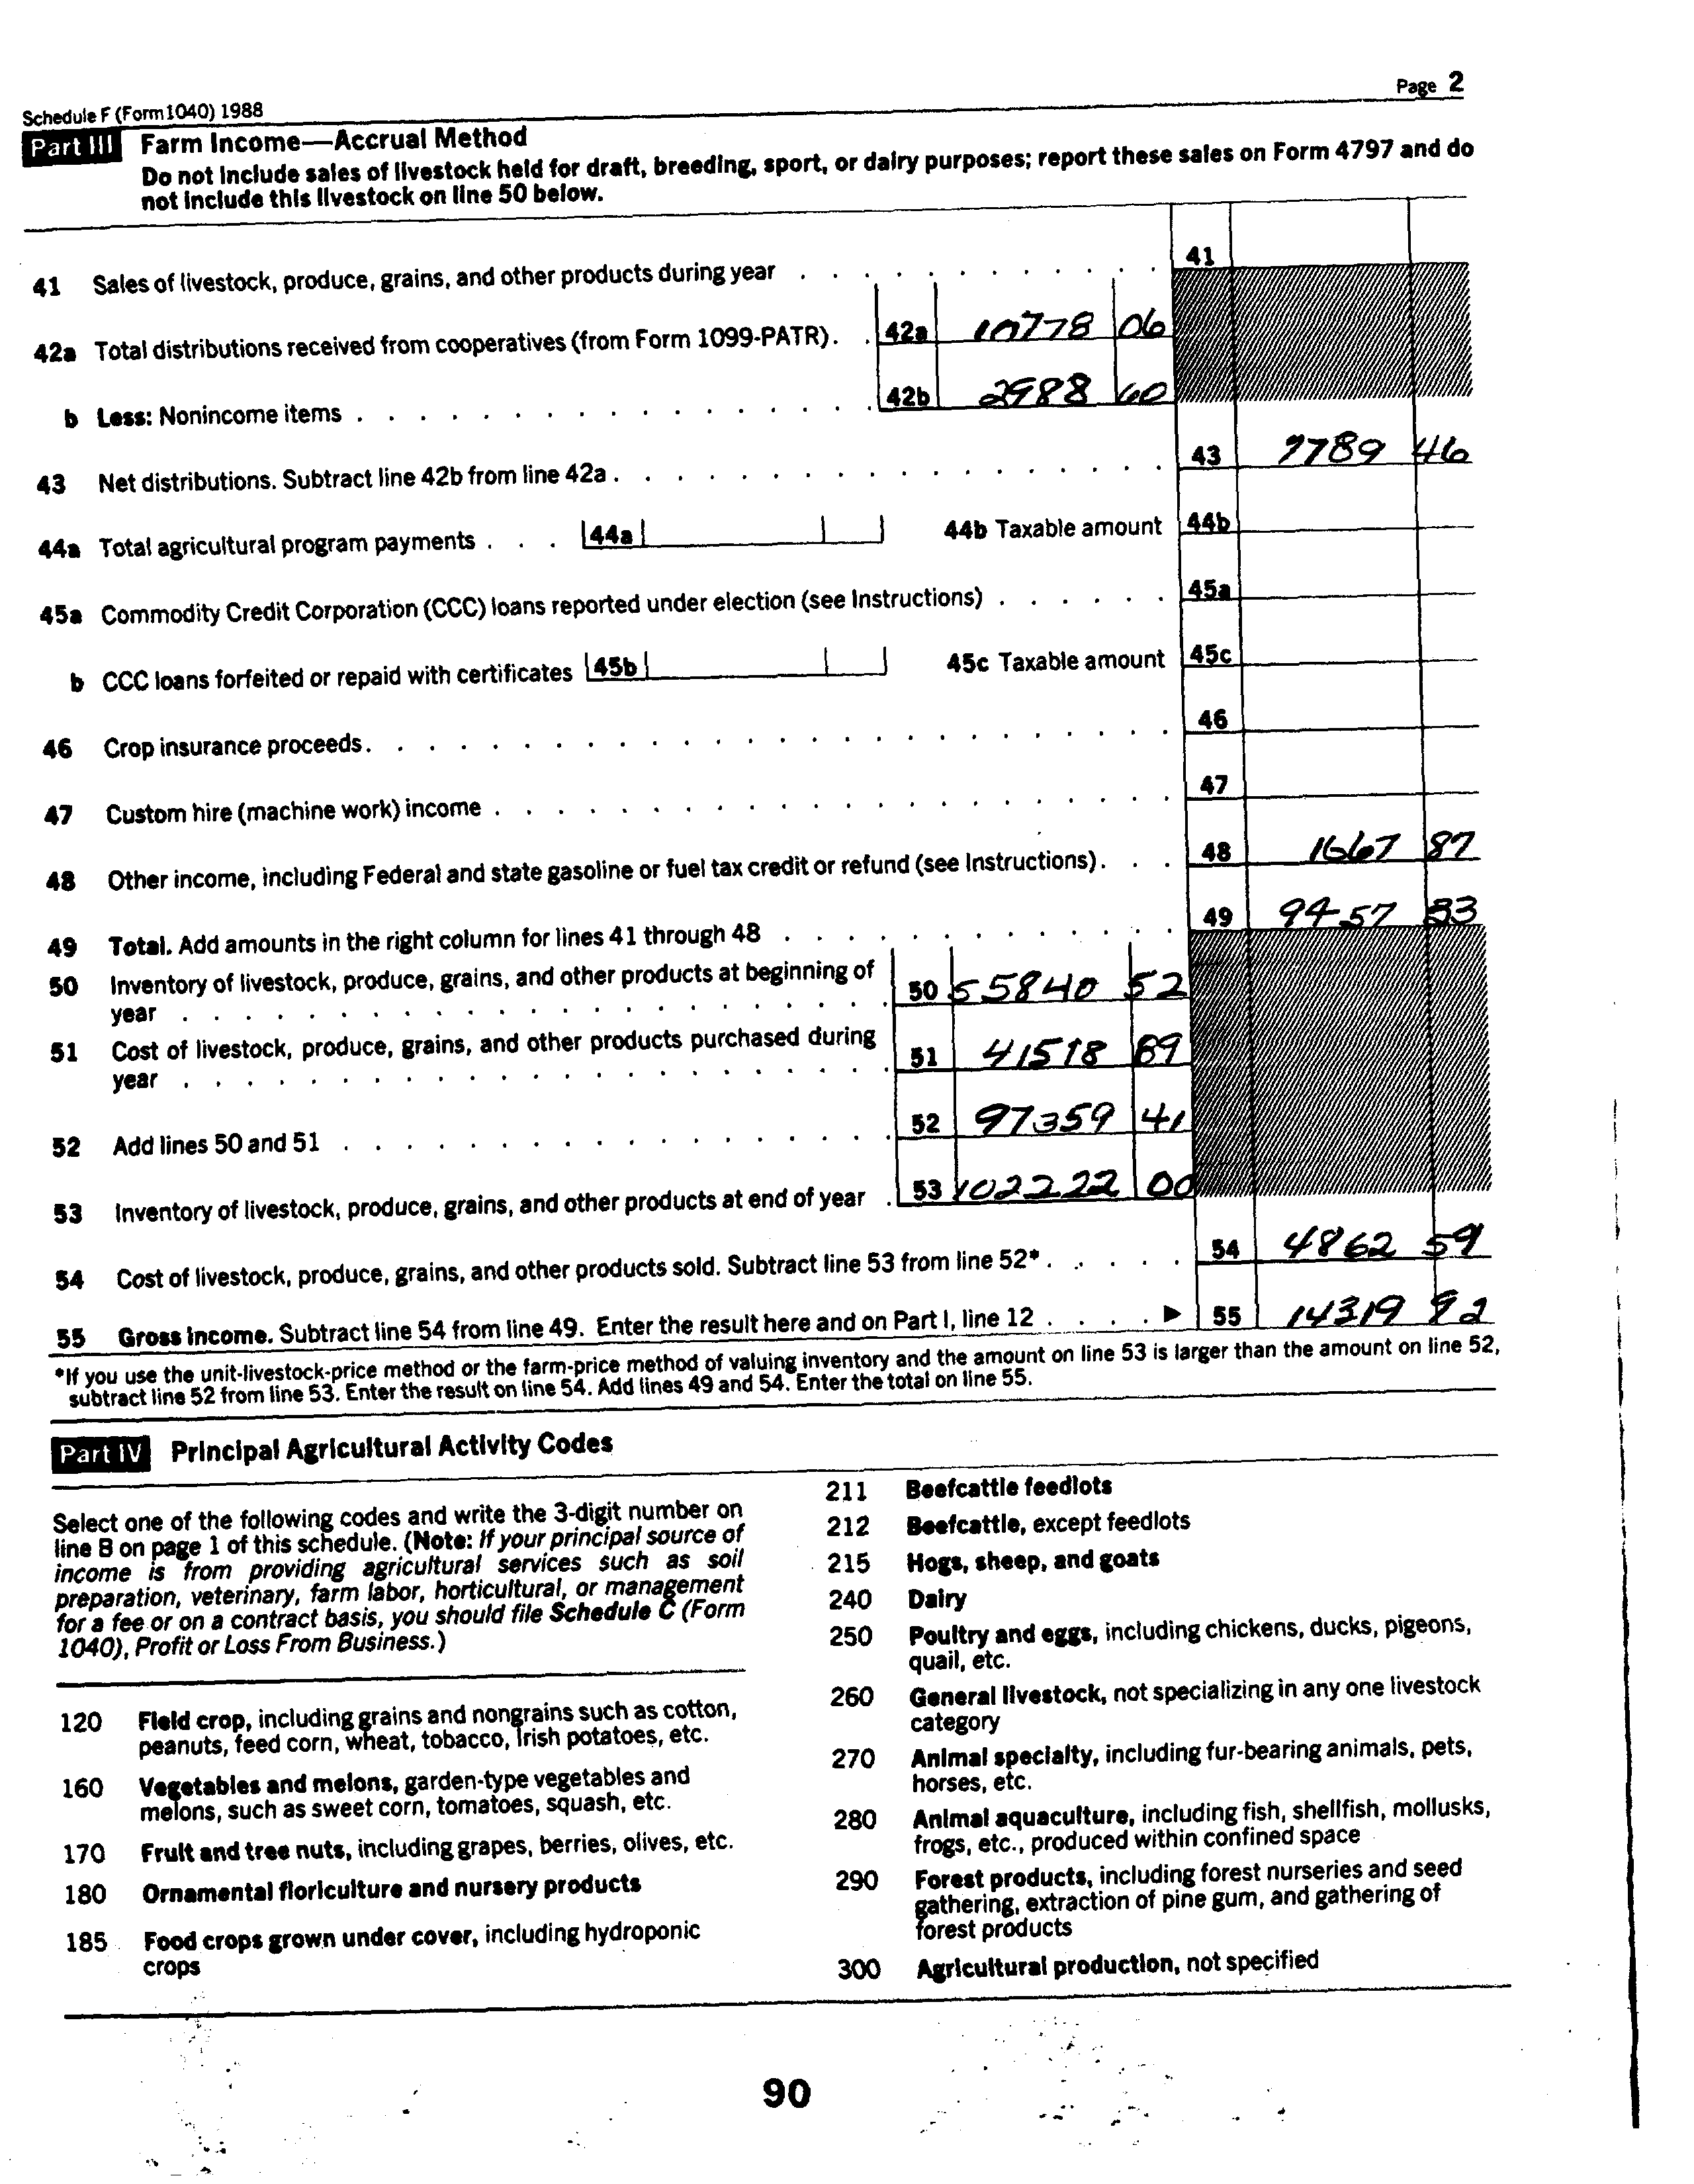 Page 2
Schedule F (Form 1040) 1988
Part III Farm Income—Accrual Method
Do not include sales of livestock held for draft, breeding, sport, or dairy purposes; report these sales on Form 4797 and do
not include this livestock on line 50 below.
41 Sales of livestock, produce, grains, and other products during year . . . . . . . . . . . . 41
42a Total distributions received from cooperatives (from Form 1099-PATR). . 42a 10778 06
b Less: Nonincome items . . . . . . . . . . . . . . . . . 42b 2988 60
43 Net distributions. Subtract line 42b from line 42a . . . . . . . . . . . . . . . . . . 43 7789 46
44a Total agricultural program payments . . . 44a 44b Taxable amount 44b
45a Commodity Credit Corporation (CCC) loans reported under election (see Instructions) . . . . . . 45a
b CCC loans forfeited or repaid with certificates 45b 45c Taxable amount 45c
46 Crop insurance proceeds. . . . . . . . . . . . . . . . . . . . . . . . . . 46
47 Custom hire (machine work) income . . . . . . . . . . . . . . . . . . . . . . 47
48 Other income, including Federal and state gasoline or fuel tax credit or refund (see Instructions). . . 48 1667 87
49 Total. Add amounts in the right column for lines 41 through 48 . . . . . . . . . . . . . 49 9457 33
50 Inventory of livestock, produce, grains, and other products at beginning of
year . . . . . . . . . . . . . . . . . . . . . . . 50 55840 52
51 Cost of livestock, produce, grains, and other products purchased during
year . . . . . . . . . . . . . . . . . . . . . . . 51 41518 89
52 Add lines 50 and 51 . . . . . . . . . . . . . . . . . . 52 97359 41
53 Inventory of livestock, produce, grains, and other products at end of year . 53 102222 00
54 Cost of livestock, produce, grains, and other products sold. Subtract line 53 from line 52* . . . . . 54 4862 59
55 Gross income. Subtract line 54 from line 49. Enter the result here and on Part I, line 12 . . . . ▶ 55 14319 92
*If you use the unit-livestock-price method or the farm-price method of valuing inventory and the amount on line 53 is larger than the amount on line 52,
subtract line 52 from line 53. Enter the result on line 54. Add lines 49 and 54. Enter the total on line 55.
Part IV Principal Agricultural Activity Codes
Select one of the following codes and write the 3-digit number on
line B on page 1 of this schedule. (Note: If your principal source of
income is from providing agricultural services such as soil
preparation, veterinary, farm labor, horticultural, or management
for a fee or on a contract basis, you should file Schedule C (Form
1040), Profit or Loss From Business.)
120 Field crop, including grains and nongrains such as cotton,
peanuts, feed corn, wheat, tobacco, Irish potatoes, etc.
160 Vegetables and melons, garden-type vegetables and
melons, such as sweet corn, tomatoes, squash, etc.
170 Fruit and tree nuts, including grapes, berries, olives, etc.
180 Ornamental floriculture and nursery products
185 Food crops grown under cover, including hydroponic
crops
211 Beefcattle feedlots
212 Beefcattle, except feedlots
215 Hogs, sheep, and goats
240 Dairy
250 Poultry and eggs, including chickens, ducks, pigeons,
quail, etc.
260 General livestock, not specializing in any one livestock
category
270 Animal specialty, including fur-bearing animals, pets,
horses, etc.
280 Animal aquaculture, including fish, shellfish, mollusks,
frogs, etc., produced within confined space
290 Forest products, including forest nurseries and seed
gathering, extraction of pine gum, and gathering of
forest products
300 Agricultural production, not specified
90